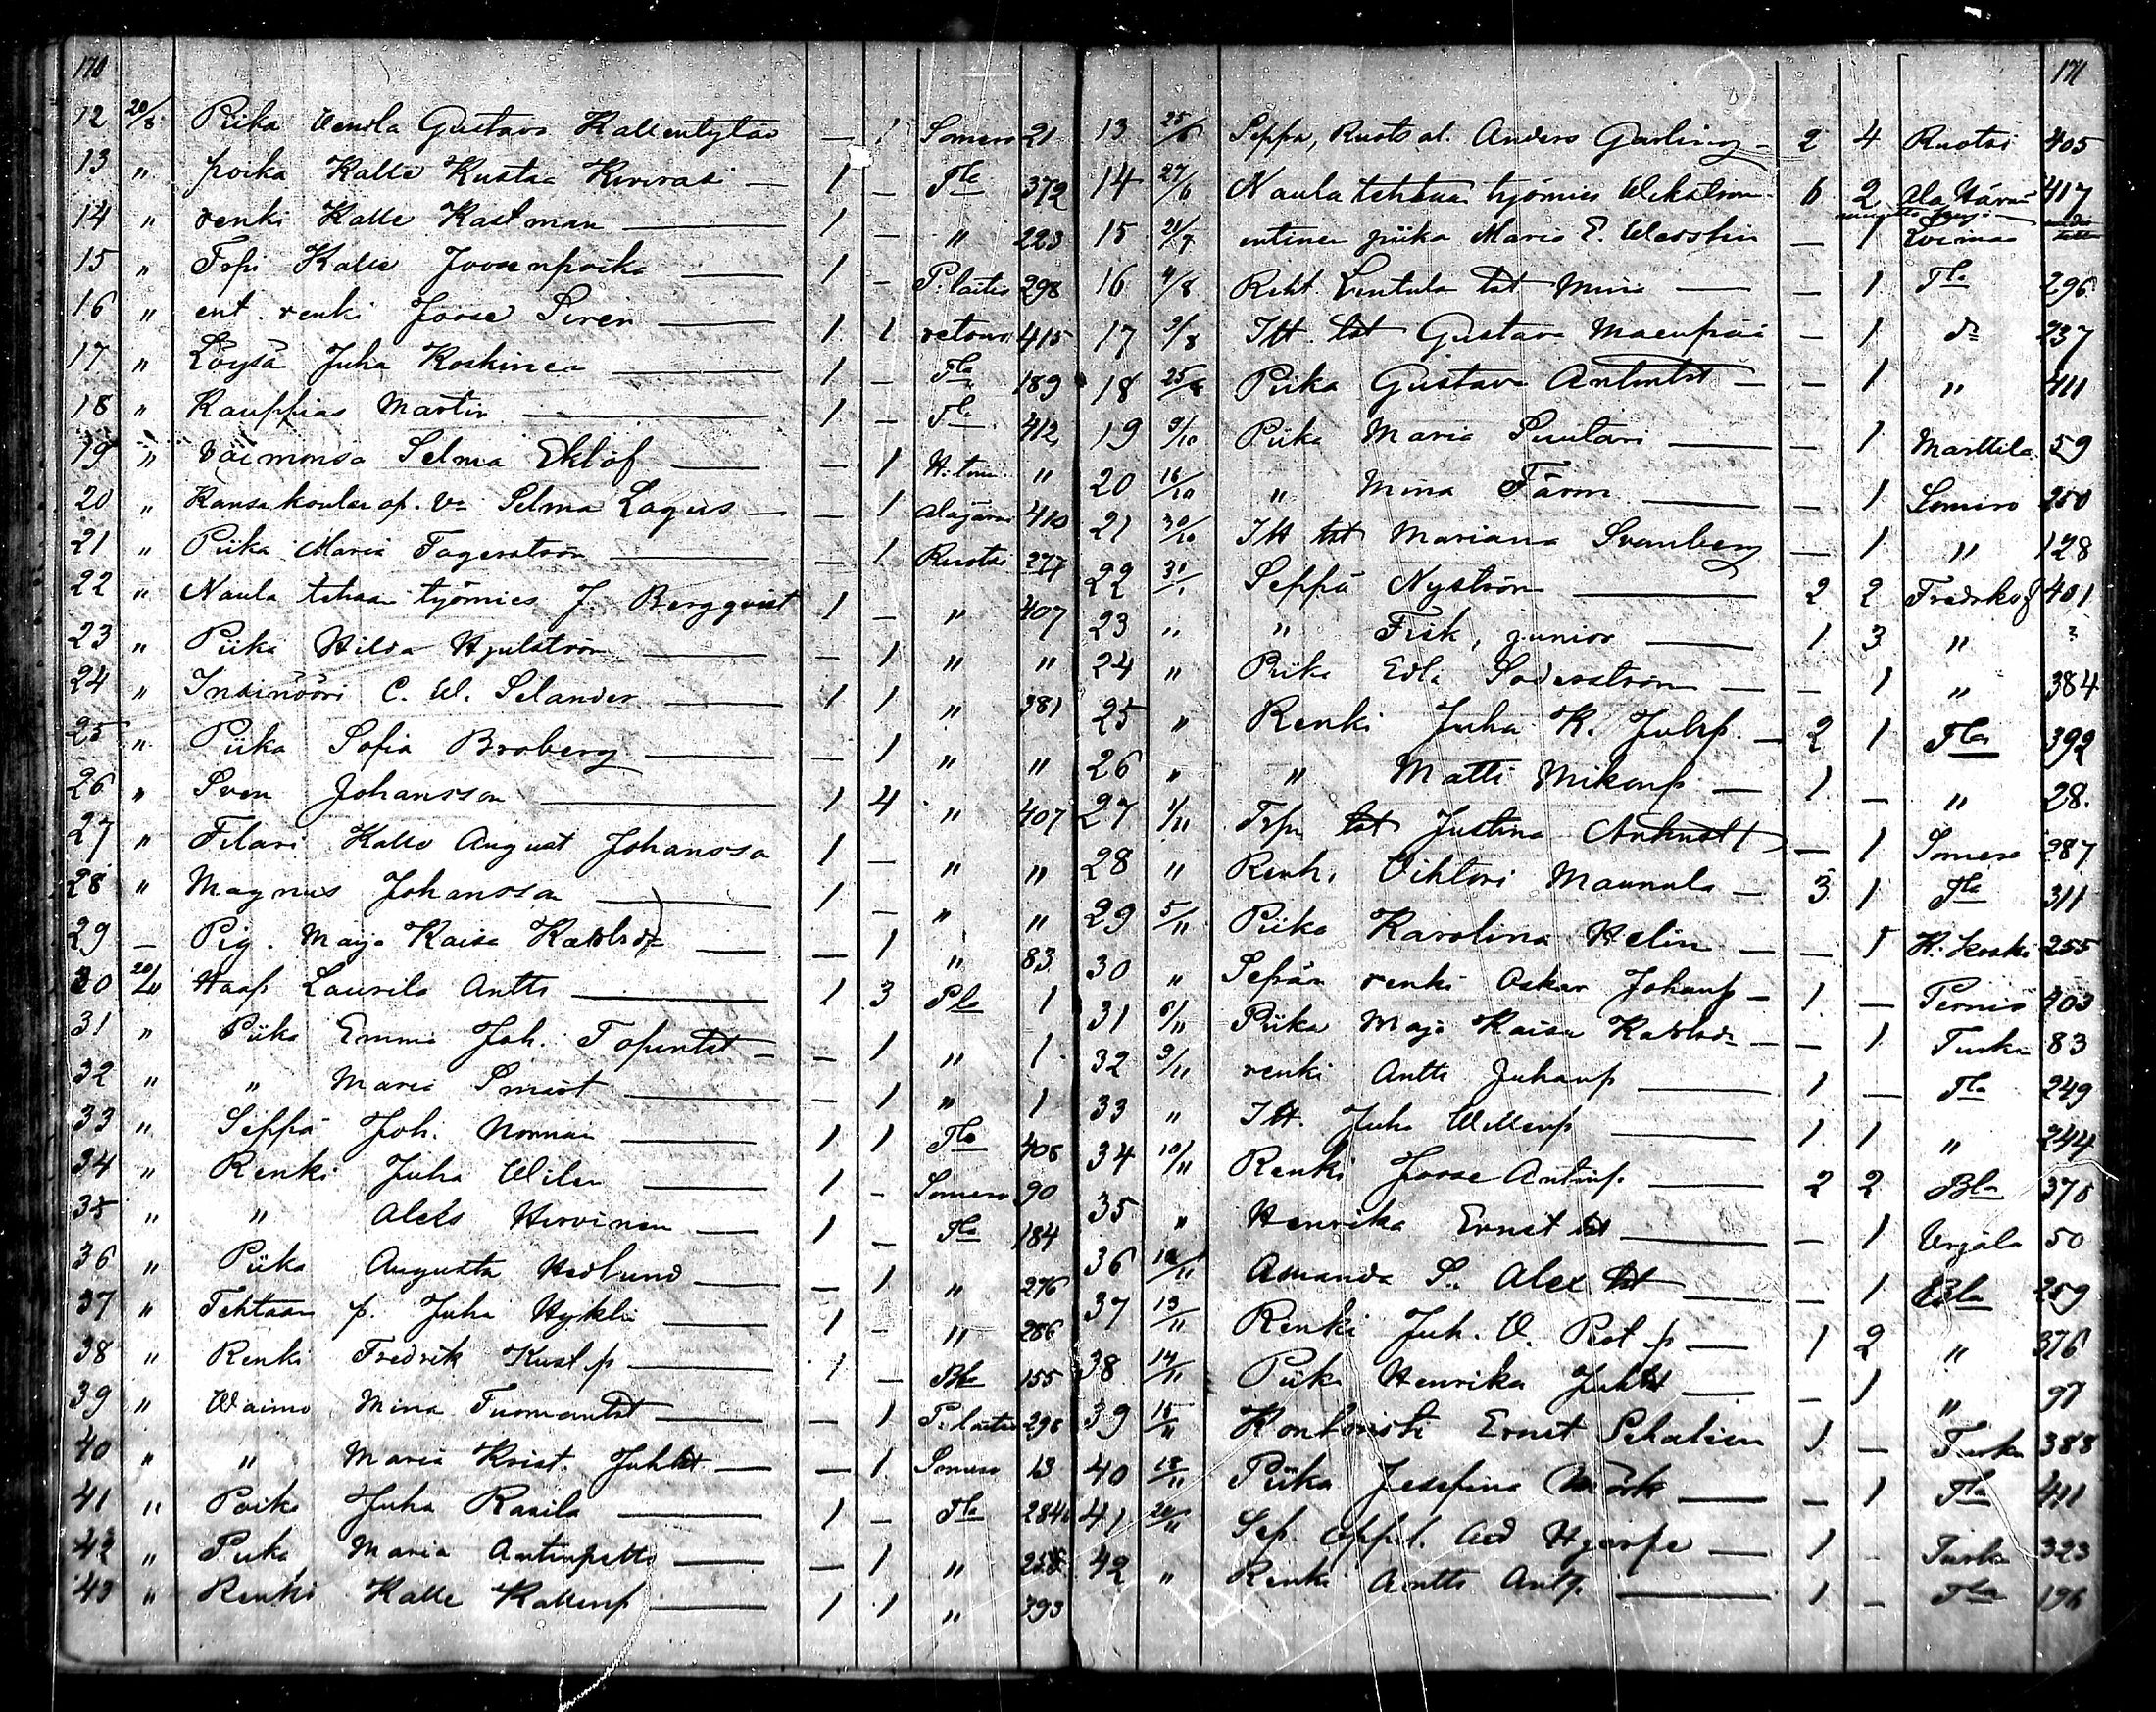 170
12 20/8 Piika Vendla Gustava Kallentytär — 1 Somero 21
13 " poika Kalle Kustaa Kiviras — 1 — Tla 372
14 " renki Kalle Kastman — 1 — " 223
15 " Trpi Kalle Joosenpoika — 1 — P:laitis 298
16 " ent. renki Joose Siren — 1 1 retour 415
17 " Löysä Juha Koskinen — 1 — Tla 189
18 " Kauppias Martin — 1 — Tla 412
19 " Vaimonsa Selma Eklöf — — 1 "
20 " Kansakoulun op. Selma Lagus — — 1 Alajärvi 410
21 " Piika Maria Fagerström — — 1 Ruotsi 277
22 " Naula tehtaan työmies J. Bergqvist 1 — " 407
23 " Piika Hilda Hjulström — — 1 " "
24 " Insinööri C. W. Selander — 1 1 " 381
25 " Piika Sofia Broberg — — 1 " "
26 " Sven Johansson — 1 4 " 407
27 " Filari Kalle August Johansson 1 — " "
28 " Magnus Johansson — 1 — " "
29 — Pig. Maja Kaisa — — 1 " 83
30 20/11 Haap Laurila Antti — 1 3 Pla 1
31 " Piika Emma Joh. — — 1 " 1
32 " " Maria Smidt — — 1 " 1
33 " Seppä Joh. — 1 1 Tla 408
34 " Renki Juha Wilen — 1 — Somero 90
35 " " Aleks Hirvinen — 1 — Tla 184
36 " Piika Augusta Hedlund — — 1 " 276
37 " Tehtaan p. Juha — 1 — " 286
38 " Renki Fredrik Kust.p — 1 — 155
39 " Waimo Mina Tuomantst — — 1 P:laitis 298
40 " " Maria Krist. Juhtst — — 1 Somero 13
41 " Poika Juha Rasila — 1 — Tla 284
42 " Piika Maria — — 1 "
43 " Renki Kalle Kallenp — 1 1 " 393
171
13 25/6 Seppä, Ruots al. Anders Garling — 2 4 Ruotsi 405
14 27/6 Naula tehtaan työmies Wikström 6 2 417
15 21/7 entinen piika Maria E. — 1 Loimaa
16 4/8 Reht. Lintula tst Mina — — 1 Tla 296
17 9/8 Itt. tst Gustava Maunpää — 1 do 237
18 Piika Gustava Antintst — — 1 " 411
19 9/10 Piika Maria Suutari — — 1 Marttila 59
20 16/10 " Mina Färm — — 1 Somero 250
21 30/10 Itt tst Mariana Svanberg — 1 " 128
22 31/ Seppä Nyström — 2 2 401
23 " " Fisk, junior — 1 3 " ?
24 " Piika Edla Söderström — — 1 " 384
25 " Renki Juha K. Juhp. — 2 1 Tla 392
26 " " Matti Mikonp — 1 — " 28.
27 1/11 Trpn tst Justina Antintst — 1 Somero 287
28 " Renki Vihtori Maunula — 3 1 Tla 311
29 5/11 Piika Karolina Helin — — 1 K. koski 255
30 " Sepän renki Oskar Johanp — 1 — Perniö 403
31 6/11 Piika Maja Kaisa — — 1 Turku 83
32 9/11 renki Antti Juhanp — 1 — Tla 249
33 " Itt. Juha Willenp — 1 1 " 244
34 10/11 Renki Joose Antinp. — 2 2 Bla 375
35 " Henrika Ernst tst — — 1 Urjala 50
36 Amanda S. Alex tst — — 1 Bla 259
37 13/11 Renki Juh. V. — 1 2 " 376
38 14/11 Piika Henrika Juhtst — — 1 " 97
39 15/11 Kontoristi Ernst — 1 — Turku 388
40 18/11 Piika Josefina Mörk — — 1 Tla 411
41 20/11 Sep. oppil. Ad Hjerpe — 1 — Turku 323
42 " Renki Antti Antp. — 1 — Tla